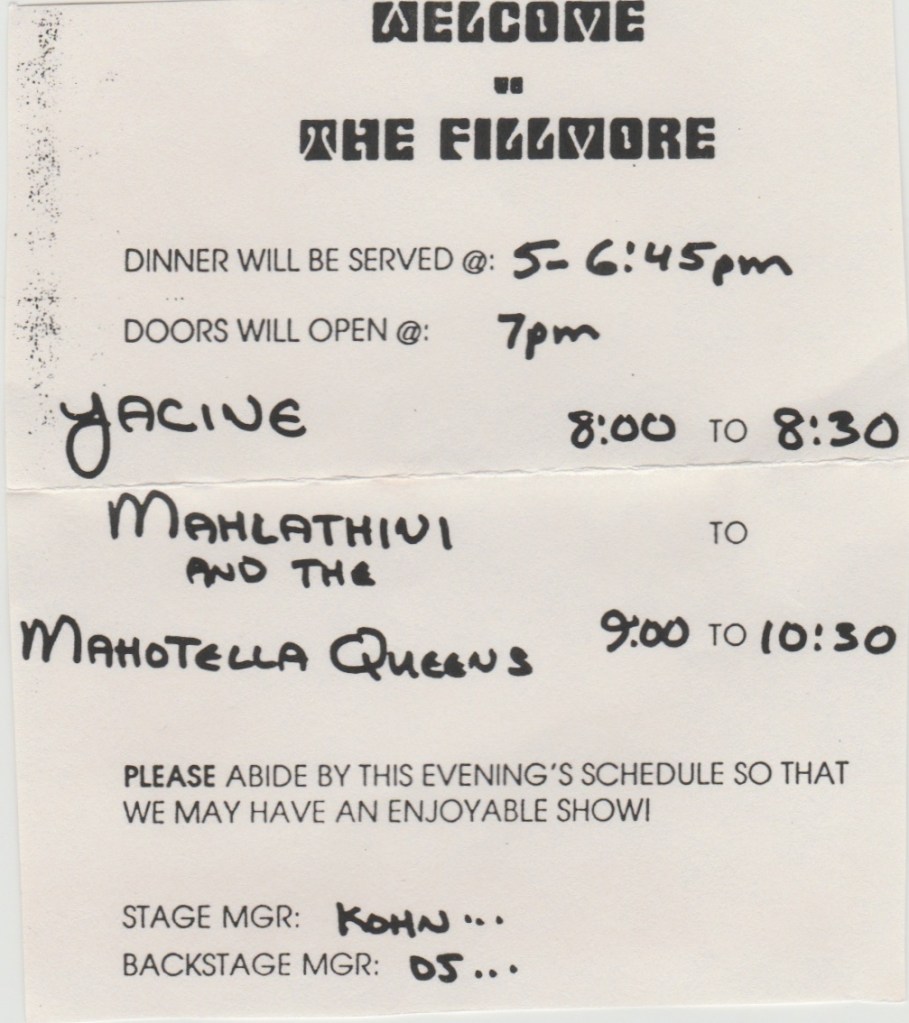 WELCOME
TO
THE FILLMORE
DINNER WILL BE SERVED @: 5-6:45pm
DOORS WILL OPEN @: 7pm
YACINE 8:00 TO 8:30
MAHLATHINI TO
AND THE
MAHOTELLA QUEENS 9:00 TO 10:30
PLEASE ABIDE BY THIS EVENING'S SCHEDULE SO THAT
WE MAY HAVE AN ENJOYABLE SHOW!
STAGE MGR: KOHN...
BACKSTAGE MGR: DJ...